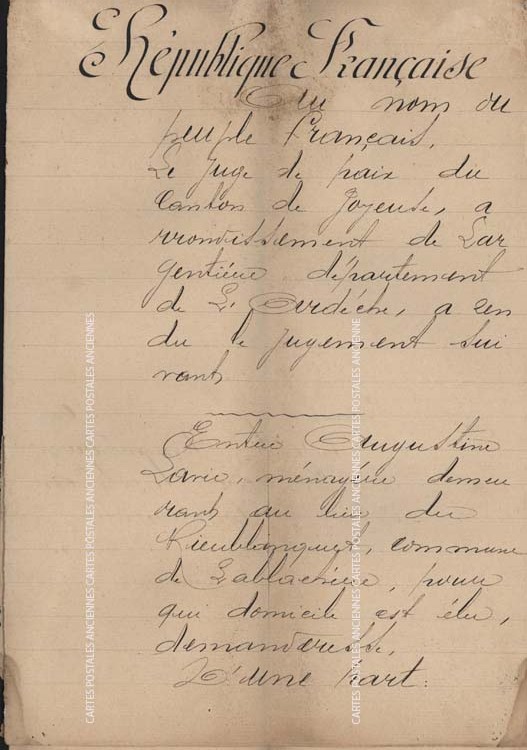 République Française
Au nom du
peuple français,
Le Juge de paix du
Canton de Joyeuse, a
rrondissement de Lar
gentière département
de L'Ardèche, a ren
du le jugement sui
vant
Entre Augustine
ménagère demeu
rant au lieu du
commune
de Lablachère, pour
qui domicile est élu,
demanderesse,
D'une part.
CARTES POSTALES ANCIENNES CARTES POSTALES ANCIENNES CARTES POSTALES ANCIENNES
CARTES POSTALES ANCIENNES CARTES POSTALES ANCIENNES CARTES POSTALES ANCIENNES